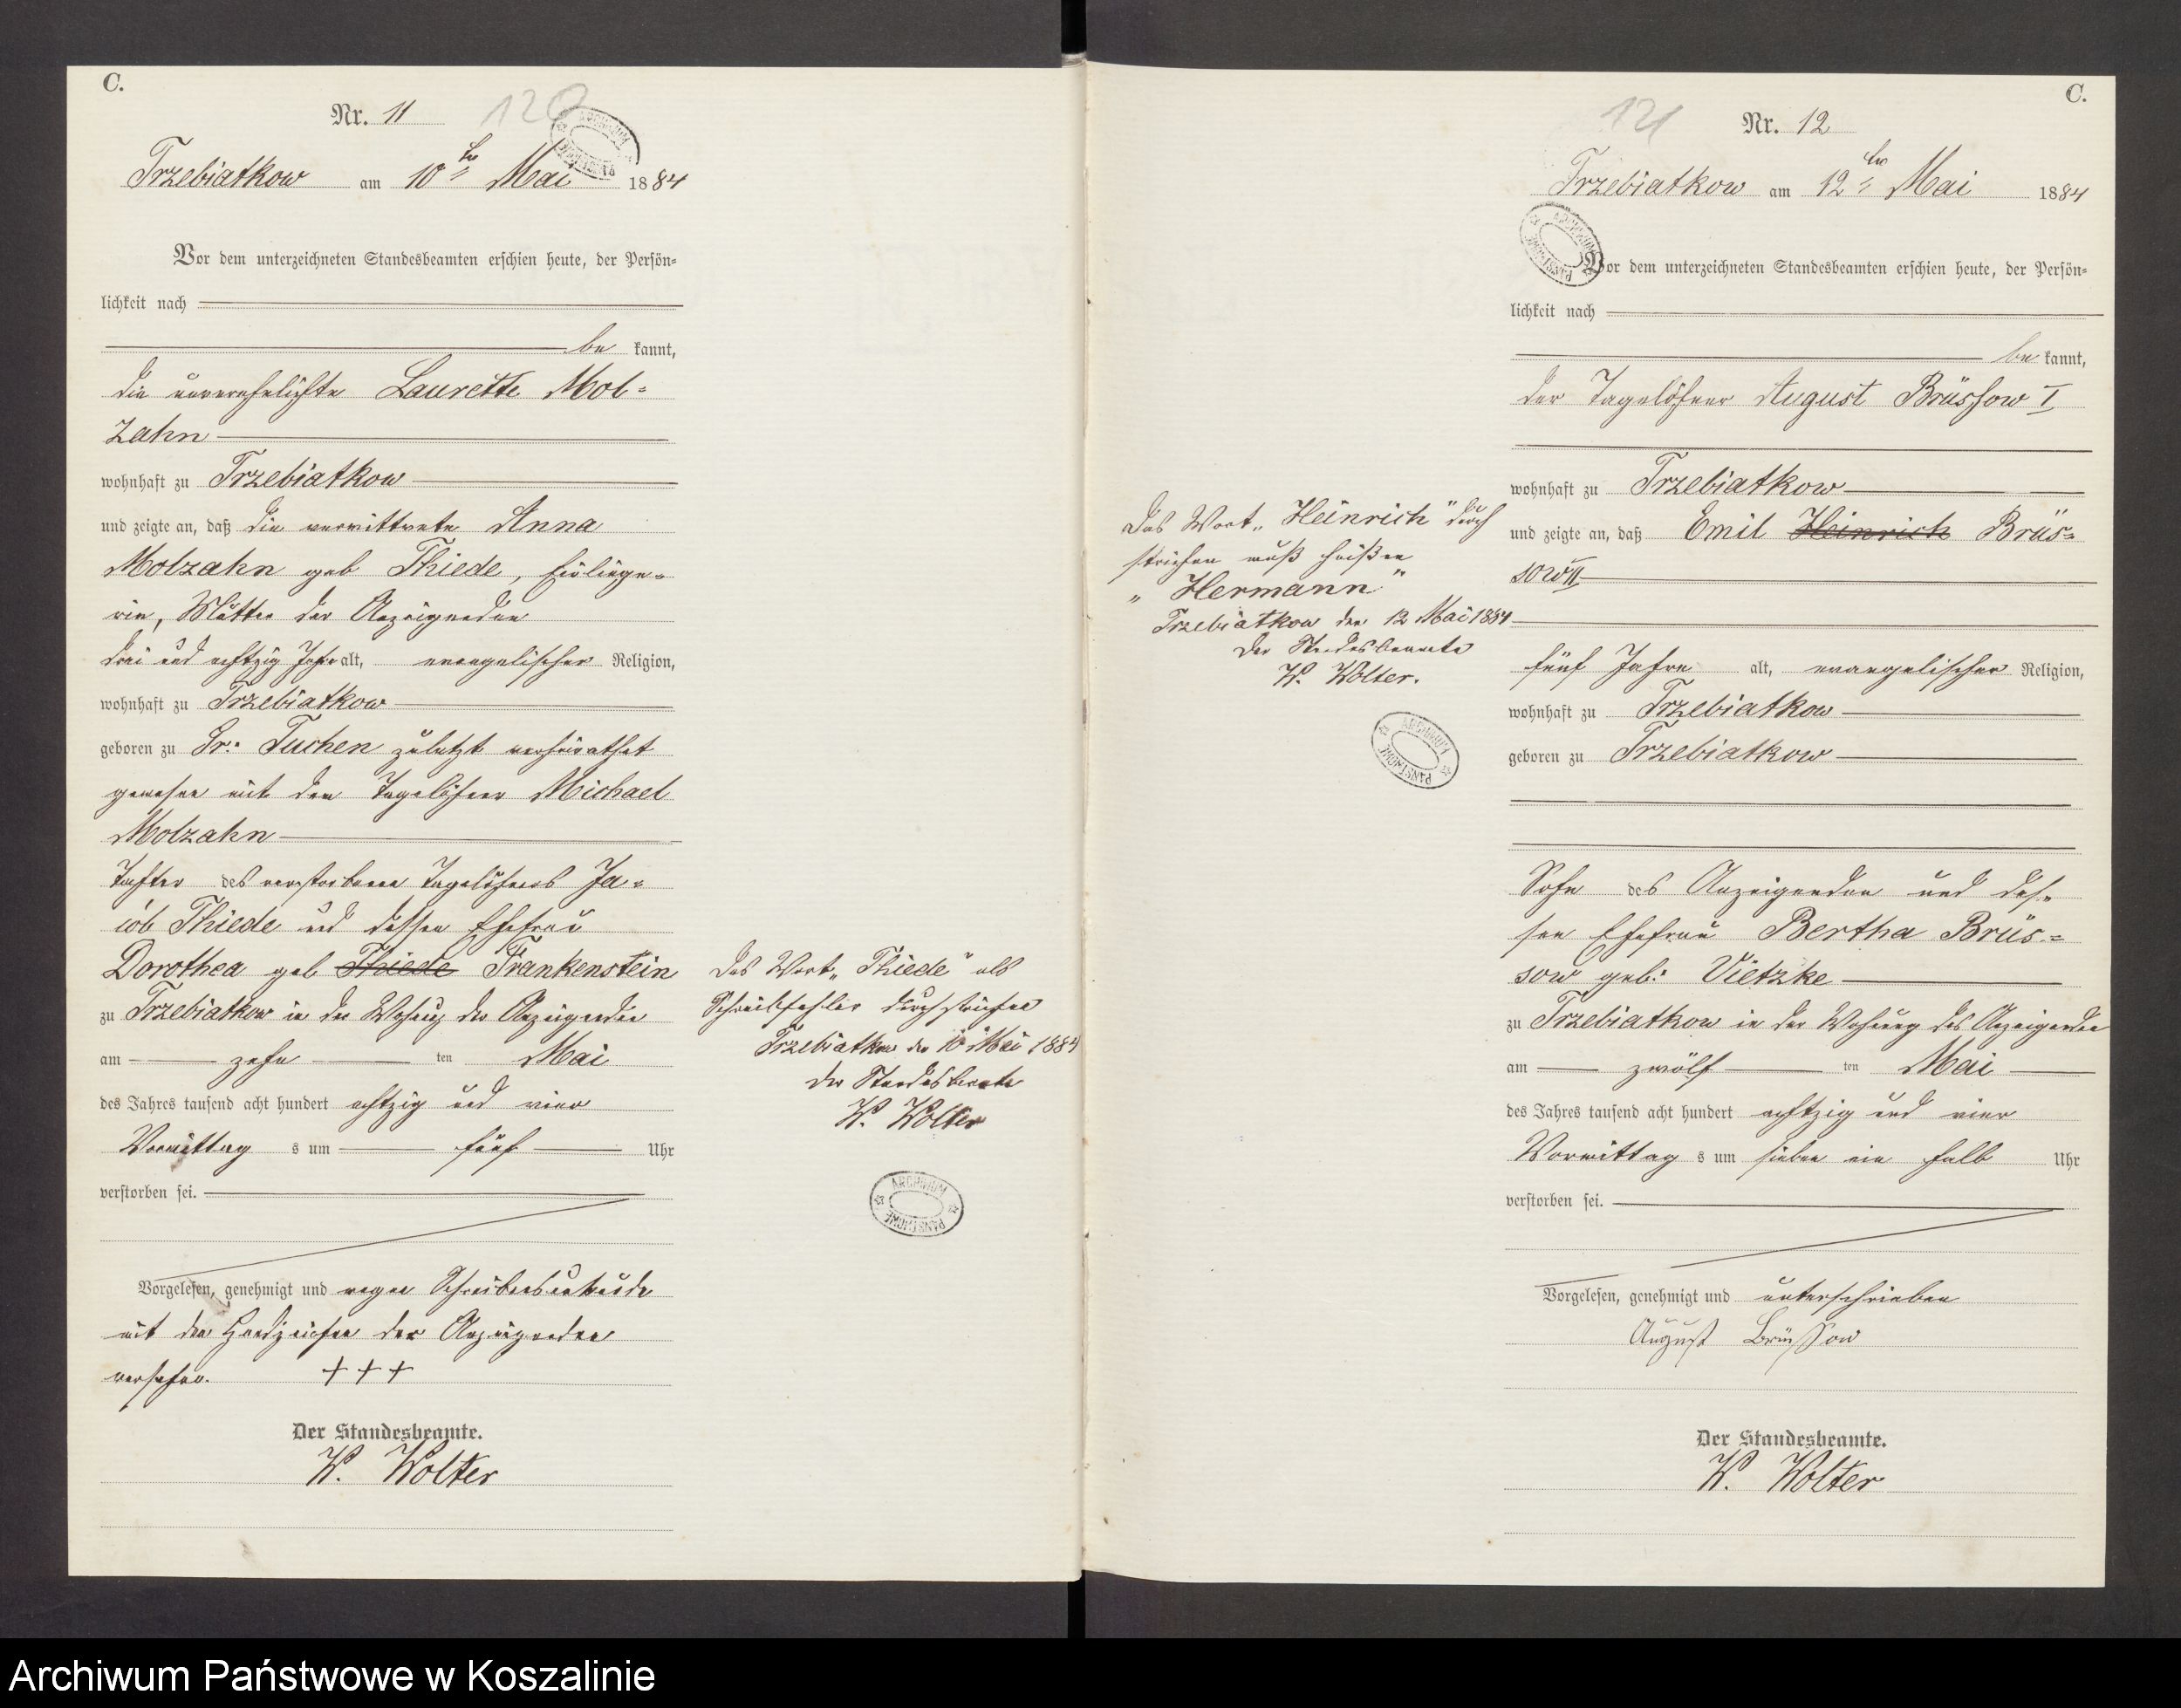 C.
Nr. 11
120
Trzebiatkow am 10ten Mai 1884
Vor dem unterzeichneten Standesbeamten erschien heute, der Persön-
lichkeit nach
be kannt,
die unverehelichte Laurette Mol-
zahn
wohnhaft zu Trzebiatkow
und zeigte an, daß die verwittwete Anna
Molzahn geb Thiede, Einliege-
rin, Mutter der Anzeigenden
drei und achtzig Jahre alt, evangelischer Religion,
wohnhaft zu Trzebiatkow
geboren zu Gr: Tuchen zuletzt verheirathet
gewesen mit dem Tagelöhner Michael
Molzahn
Tochter des verstorbenen Tagelöhners Ja-
cob Thiede und dessen Ehefrau
Dorothea geb Thiede Frankenstein
zu Trzebiatkow in der Wohnung der Anzeigenden
am zehn ten Mai
des Jahres tausend acht hundert achtzig und vier
Vormittag s um fünf Uhr
verstorben sei.
Vorgelesen, genehmigt und wegen Schreibensunkunde
mit den Handzeichen der Anzeigenden
versehen. + + +
Der Standesbeamte.
W. Wolter
Das Wort „Thiede" als
Schreibfehler durchstrichen
Trzebiatkow den 10 Mai 1884
Der Standesbeamte
W. Wolter
ARCHIWUM PAŃSTWOWE
C.
121
Nr. 12
Trzebiatkow am 12ten Mai 1884
Vor dem unterzeichneten Standesbeamten erschien heute, der Persön-
lichkeit nach
be kannt,
der Tagelöhner August Brüssow I
wohnhaft zu Trzebiatkow
und zeigte an, daß Emil Heinrich Brüs-
sow II
fünf Jahre alt, evangelischer Religion,
wohnhaft zu Trzebiatkow
geboren zu Trzebiatkow
Sohn des Anzeigenden und des-
sen Ehefrau Bertha Brüs-
sow geb: Vietzke
zu Trzebiatkow in der Wohnung des Anzeigenden
am zwölf ten Mai
des Jahres tausend acht hundert achtzig und vier
Vormittag s um sieben ein halb Uhr
verstorben sei.
Vorgelesen, genehmigt und unterschrieben
August Brüssow
Der Standesbeamte.
W. Wolter
Das Wort „Heinrich" durch
strichen muß heißen
„Hermann"
Trzebiatkow den 12 Mai 1884
Der Standesbeamte
W. Wolter.
ARCHIWUM PAŃSTWOWE
Archiwum Państwowe w Koszalinie